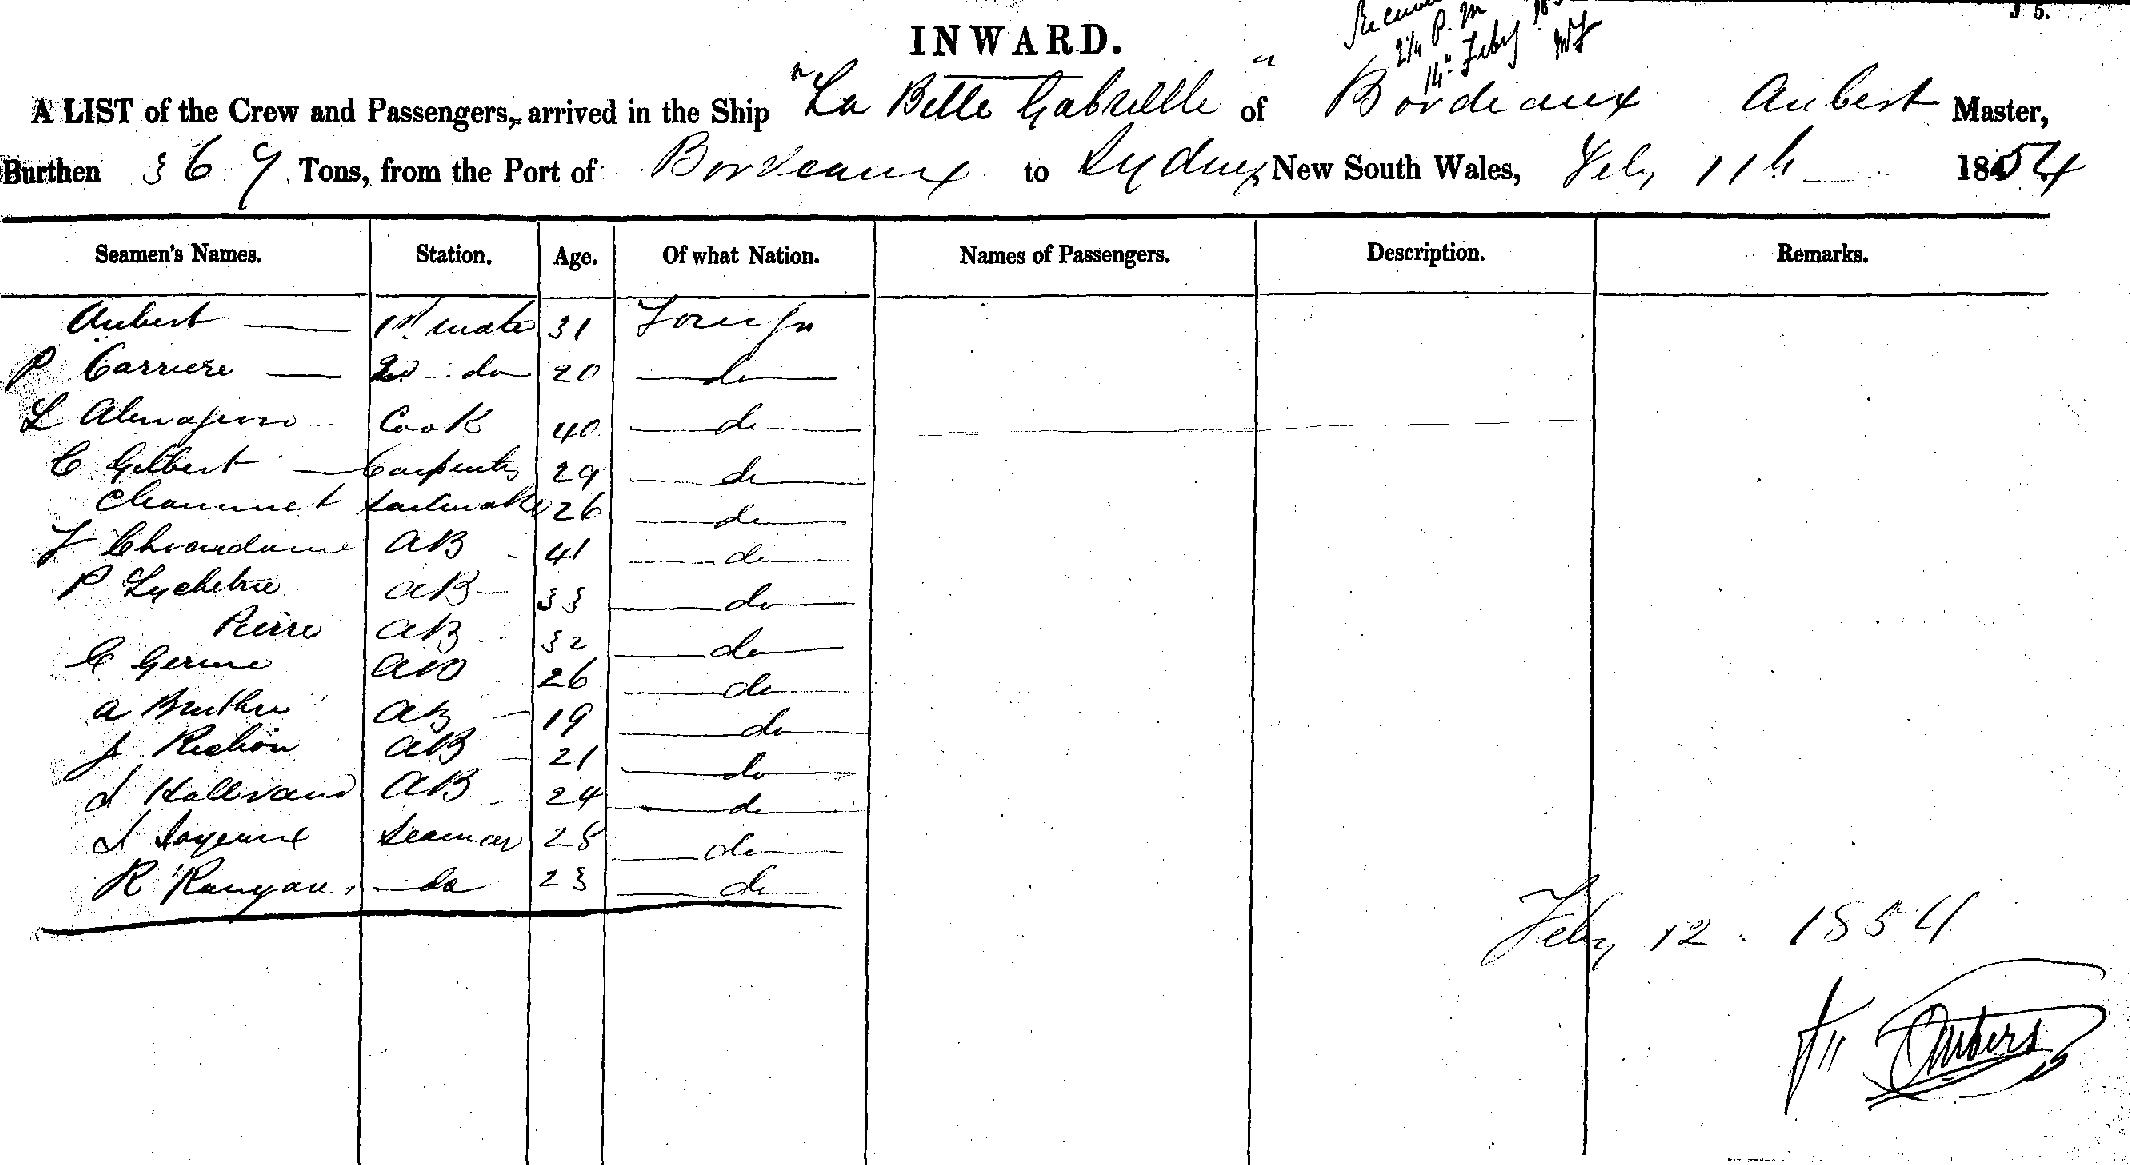 J 5.
INWARD.
2¼ P.M
14th Feby
A LIST of the Crew and Passengers, arrived in the Ship "La Belle Gabrielle" of Bordeaux Aubert Master,
Burthen 369 Tons, from the Port of Bordeaux to Sydney New South Wales, Feby 11th 1854
Seamen's Names. Station. Age. Of what Nation. Names of Passengers. Description. Remarks.
Aubert 1st mate 31 Foreign
P Carriere 2d do 20 do
L Cook 40 do
C Gilbert Carpenter 29 do
26 do
AB 41 do
P AB 33 do
Pierre AB 32 do
AB 26 do
a AB 19 do
J Richon AB 21 do
AB 24 do
Seaman 25 do
R do 23 do
Feby 12. 1854
Aubert